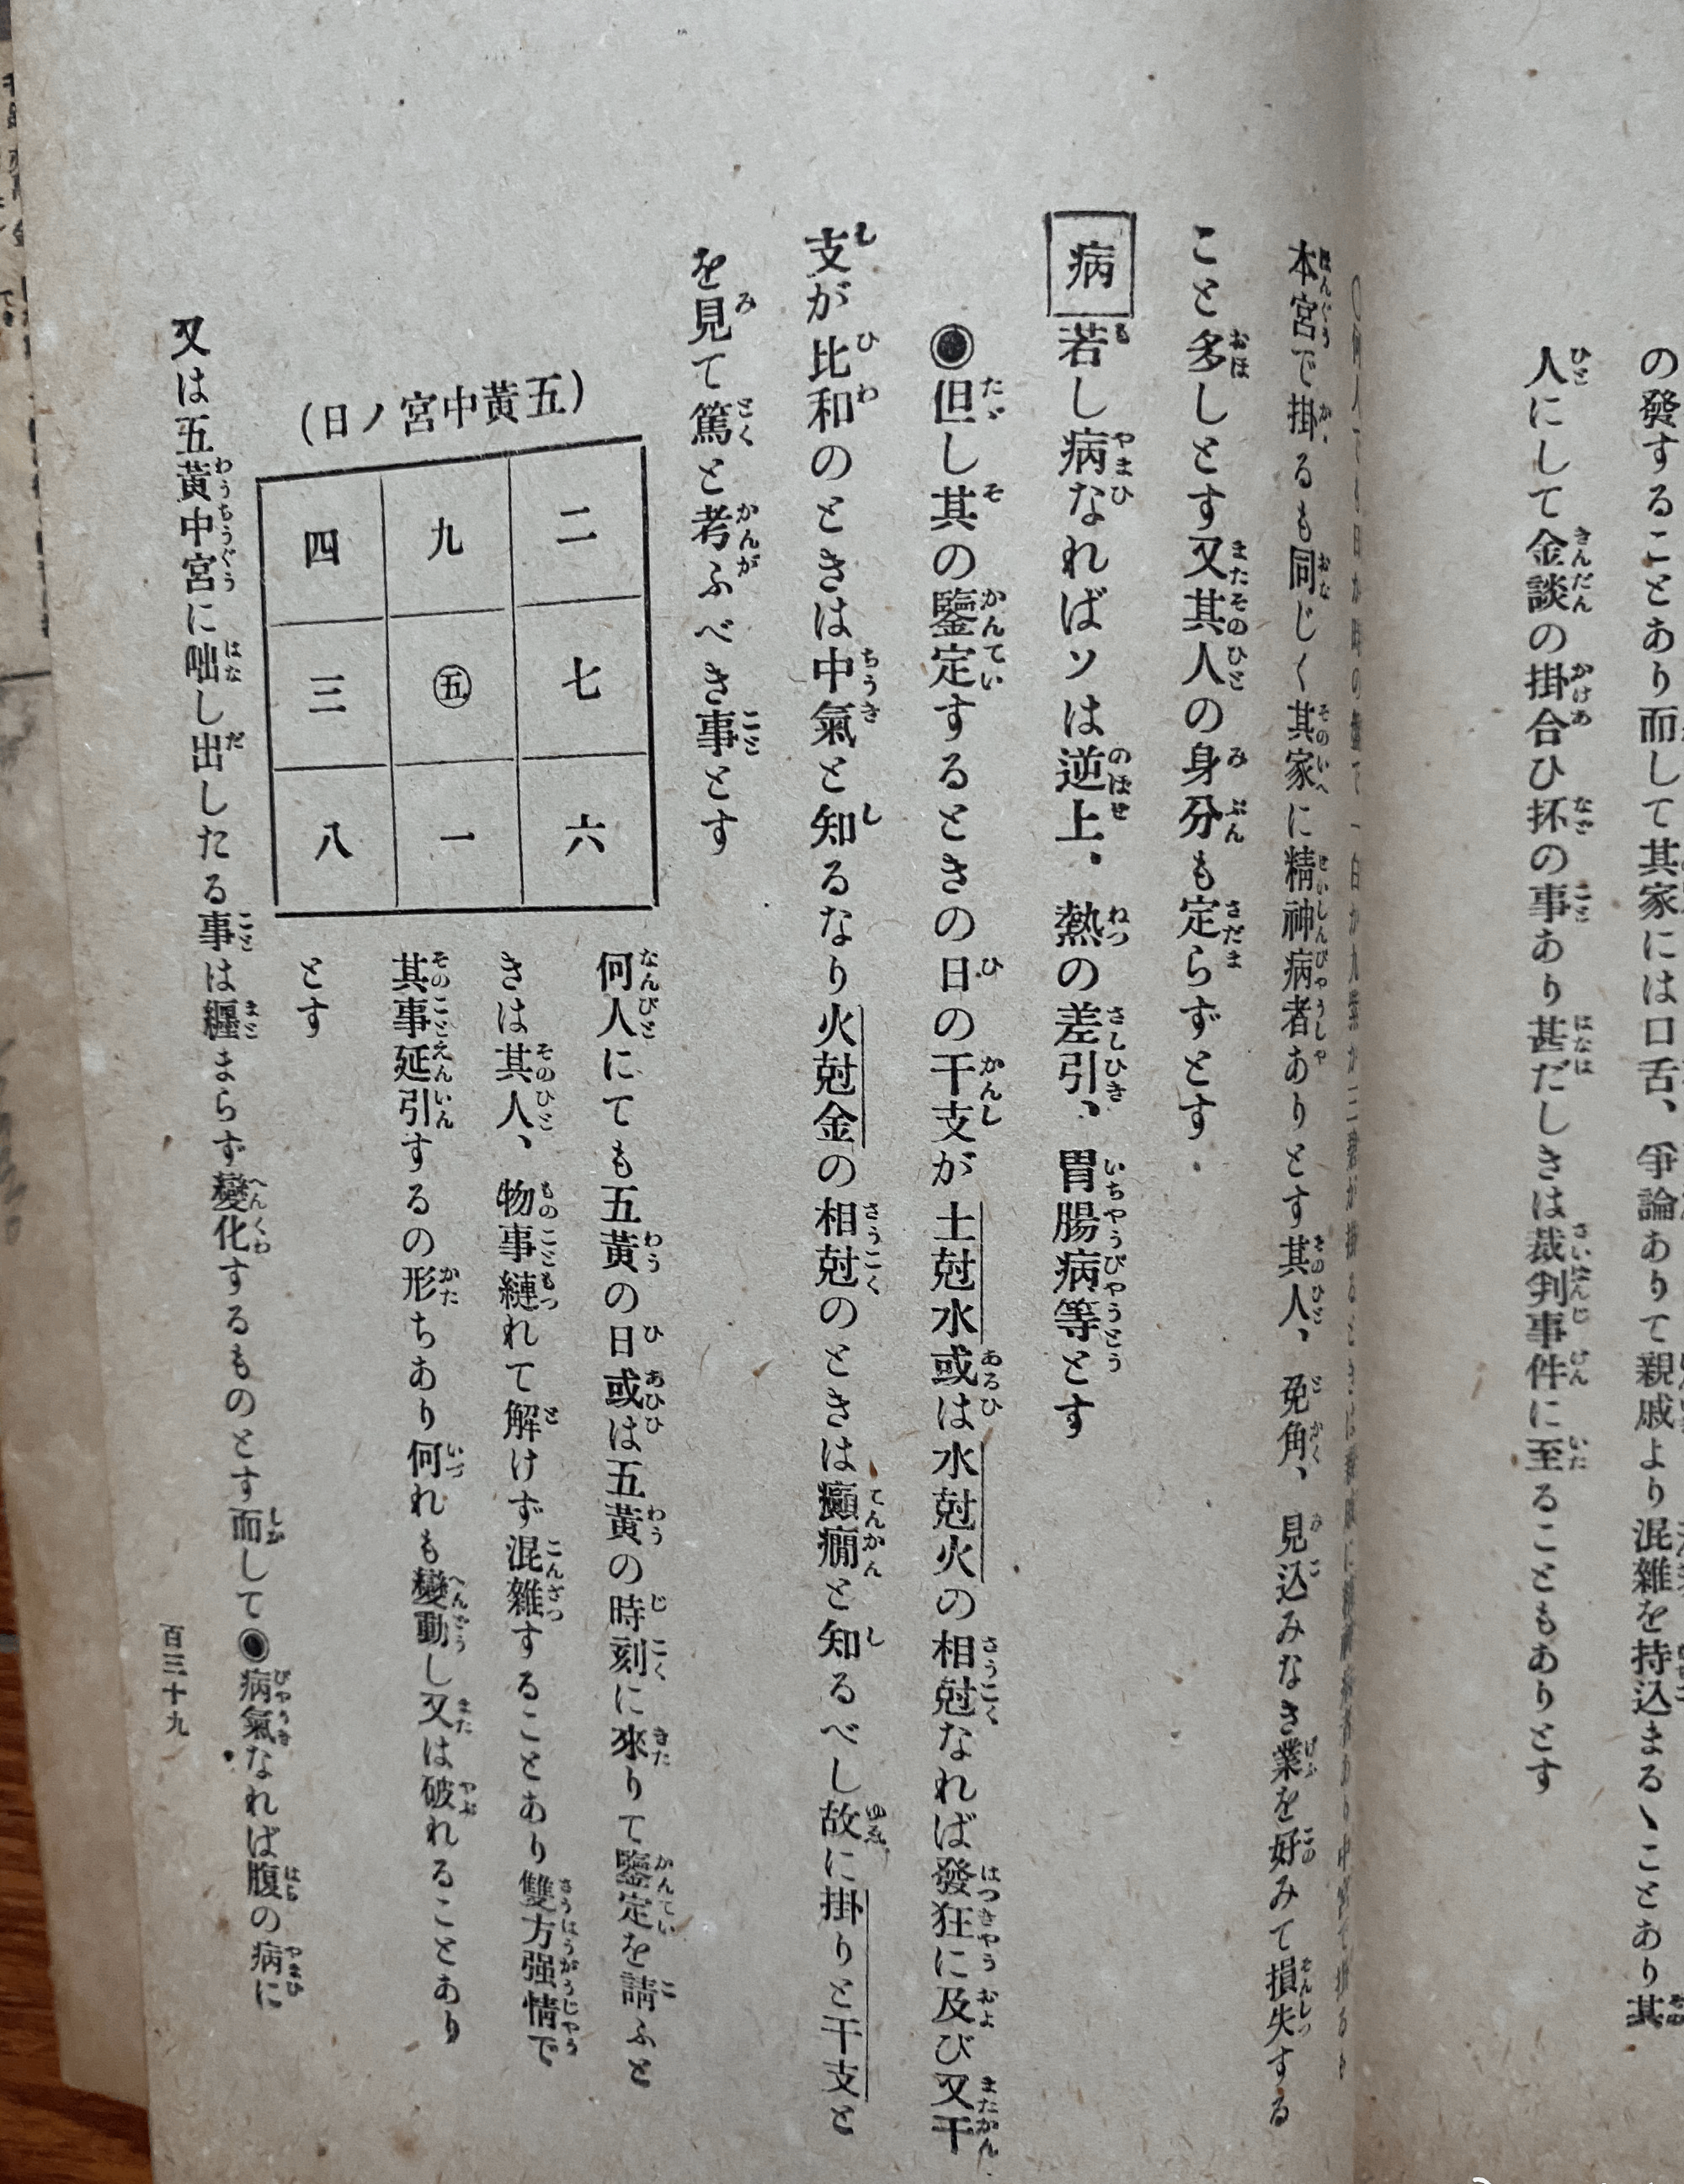 の發することあり而して其家には口舌、爭論ありて親戚より混雜を持込まるヽことあり其
人にして金談の掛合ひ抔の事あり甚だしきは裁判事件に至ることもありとす
本宮で掛るも同じく其家に精神病者ありとす其人、兎角、見込みなき業を好みて損失する
こと多しとす又其人の身分も定らずとす
病 若し病なればソは逆上、熱の差引、胃腸病等とす
◉但し其の鑒定するときの日の干支が土尅水或は水尅火の相尅なれば發狂に及び又干
支が比和のときは中氣と知るなり火尅金の相尅のときは癲癇と知るべし故に掛りと干支と
を見て篤と考ふべき事とす
(五黃中宮ノ日)
四 九 二
三 ㊄ 七
八 一 六
何人にても五黃の日或は五黃の時刻に來りて鑒定を請ふと
きは其人、物事縺れて解けず混雜することあり雙方强情で
其事延引するの形ちあり何れも變動し又は破れることあり
とす
又は五黃中宮に咄し出したる事は纒まらず變化するものとす而して◉病氣なれば腹の病に
百三十九